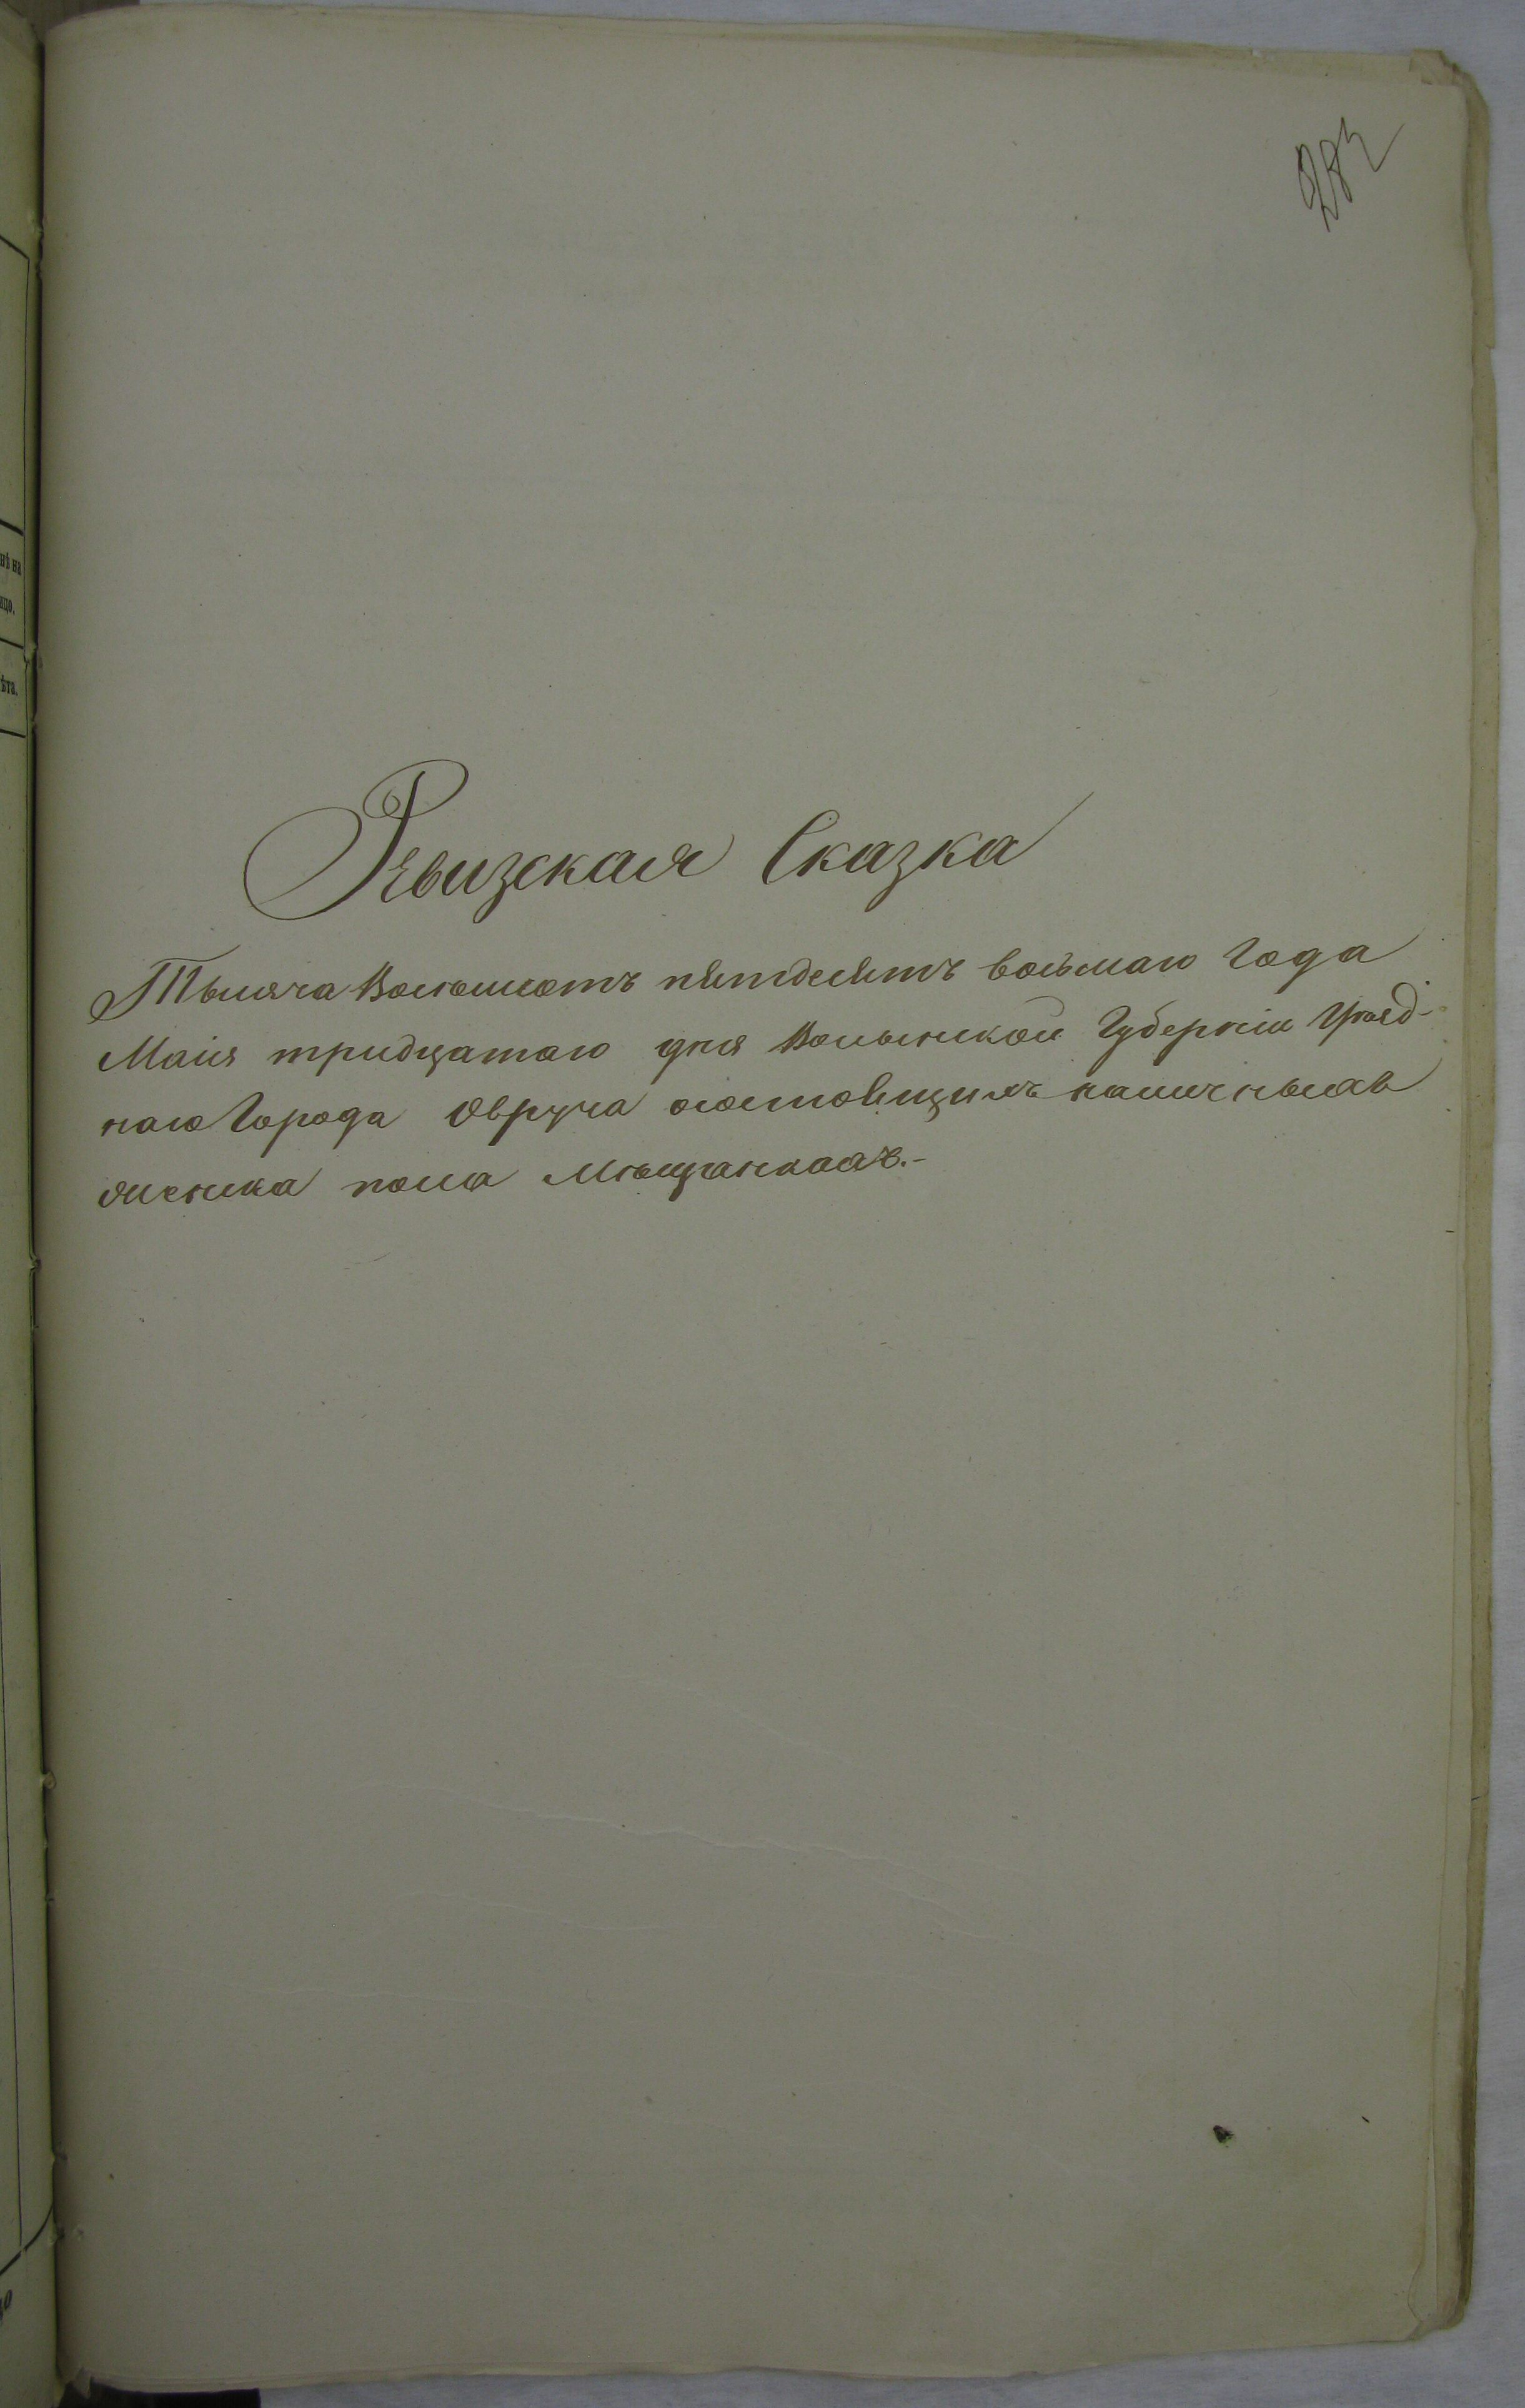 283
Ревизская Сказка
Тысяча восемьсотъ пятдесятъ восьмаго года
Маія тридцатаго дня Волынской Губерніи Уѣзд-
наго Города Овруча состоящихъ на личныхъ
женска пола Мѣщанкахъ.-
нѣ на
ицо.
ѣта.